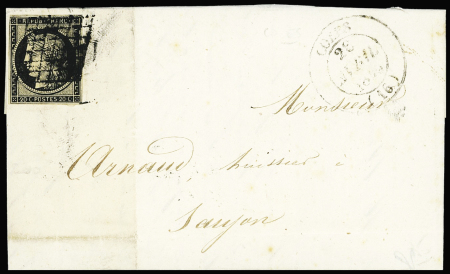 REPUB FRANC
20 C POSTES 20 C
28
AVRIL
(16)
Monsieur
Arnaud, huissier à
Saujon